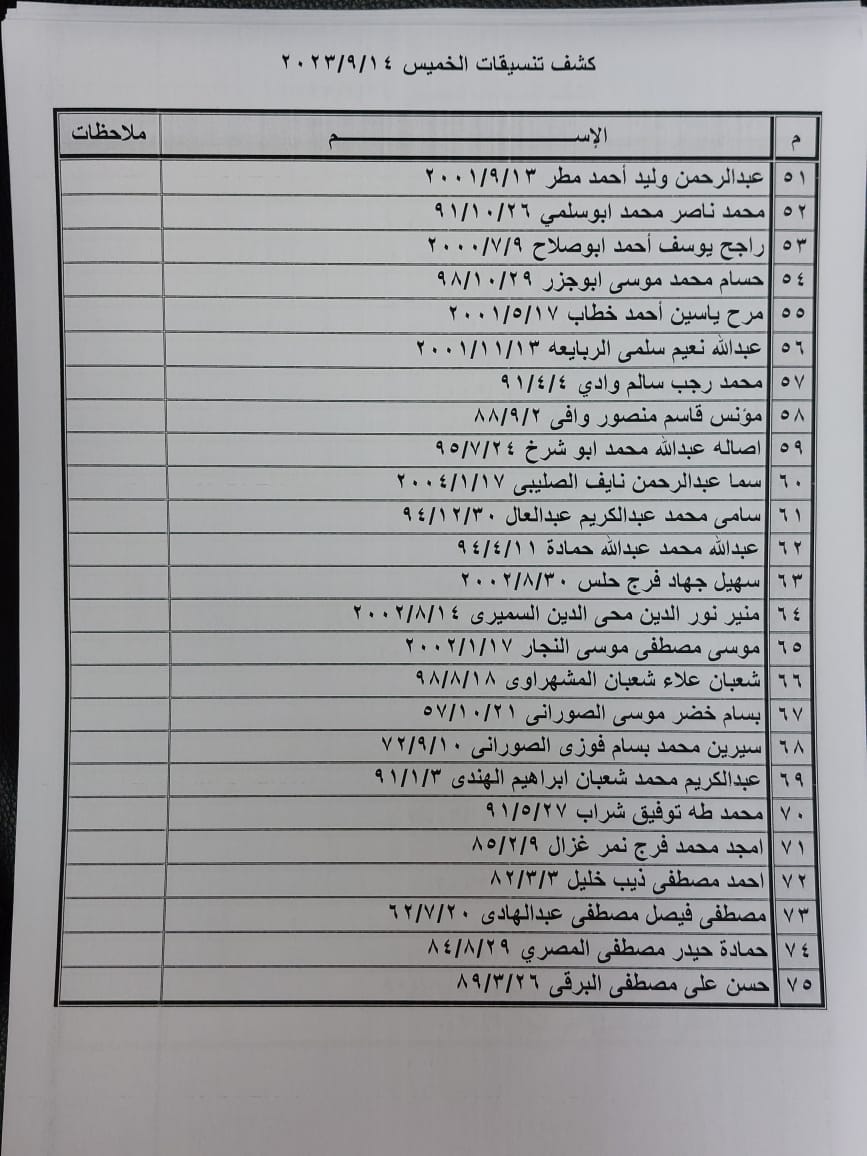 كشف تنسيقات الخميس ٢٠٢٣/٩/١٤
م الإســـــــــــــــم ملاحظات
٥١ عبدالرحمن وليد أحمد مطر ٢٠٠١/٩/١٣
٥٢ محمد ناصر محمد ابوسلمي ٩١/١٠/٢٦
٥٣ راجح يوسف أحمد ابوصلاح ٢٠٠٠/٧/٩
٥٤ حسام محمد موسى ابوجزر ٩٨/١٠/٢٩
٥٥ مرح ياسين أحمد خطاب ٢٠٠١/٥/١٧
٥٦ عبدالله نعيم سلمى الربايعه ٢٠٠١/١١/١٣
٥٧ محمد رجب سالم وادي ٩١/٤/٤
٥٨ مؤنس قاسم منصور وافى ٨٨/٩/٢
٥٩ اصاله عبدالله محمد ابو شرخ ٩٥/٧/٢٤
٦٠ سما عبدالرحمن نايف الصليبى ٢٠٠٤/١/١٧
٦١ سامى محمد عبدالكريم عبدالعال ٩٤/١٢/٣٠
٦٢ عبدالله محمد عبدالله حمادة ٩٤/٤/١١
٦٣ سهيل جهاد فرج حلس ٢٠٠٢/٨/٣٠
٦٤ منير نور الدين محى الدين السميرى ٢٠٠٢/٨/١٤
٦٥ موسى مصطفى موسى النجار ٢٠٠٢/١/١٧
٦٦ شعبان علاء شعبان المشهراوى ٩٨/٨/١٨
٦٧ بسام خضر موسى الصورانى ٥٧/١٠/٢١
٦٨ سيرين محمد بسام فوزى الصورانى ٧٢/٩/١٠
٦٩ عبدالكريم محمد شعبان ابراهيم الهندى ٩١/١/٣
٧٠ محمد طه توفيق شراب ٩١/٥/٢٧
٧١ امجد محمد فرج نمر غزال ٨٥/٢/٩
٧٢ احمد مصطفى ذيب خليل ٨٢/٣/٣
٧٣ مصطفى فيصل مصطفى عبدالهادى ٦٢/٧/٢٠
٧٤ حمادة حيدر مصطفى المصري ٨٤/٨/٢٩
٧٥ حسن على مصطفى البرقى ٨٩/٣/٢٦